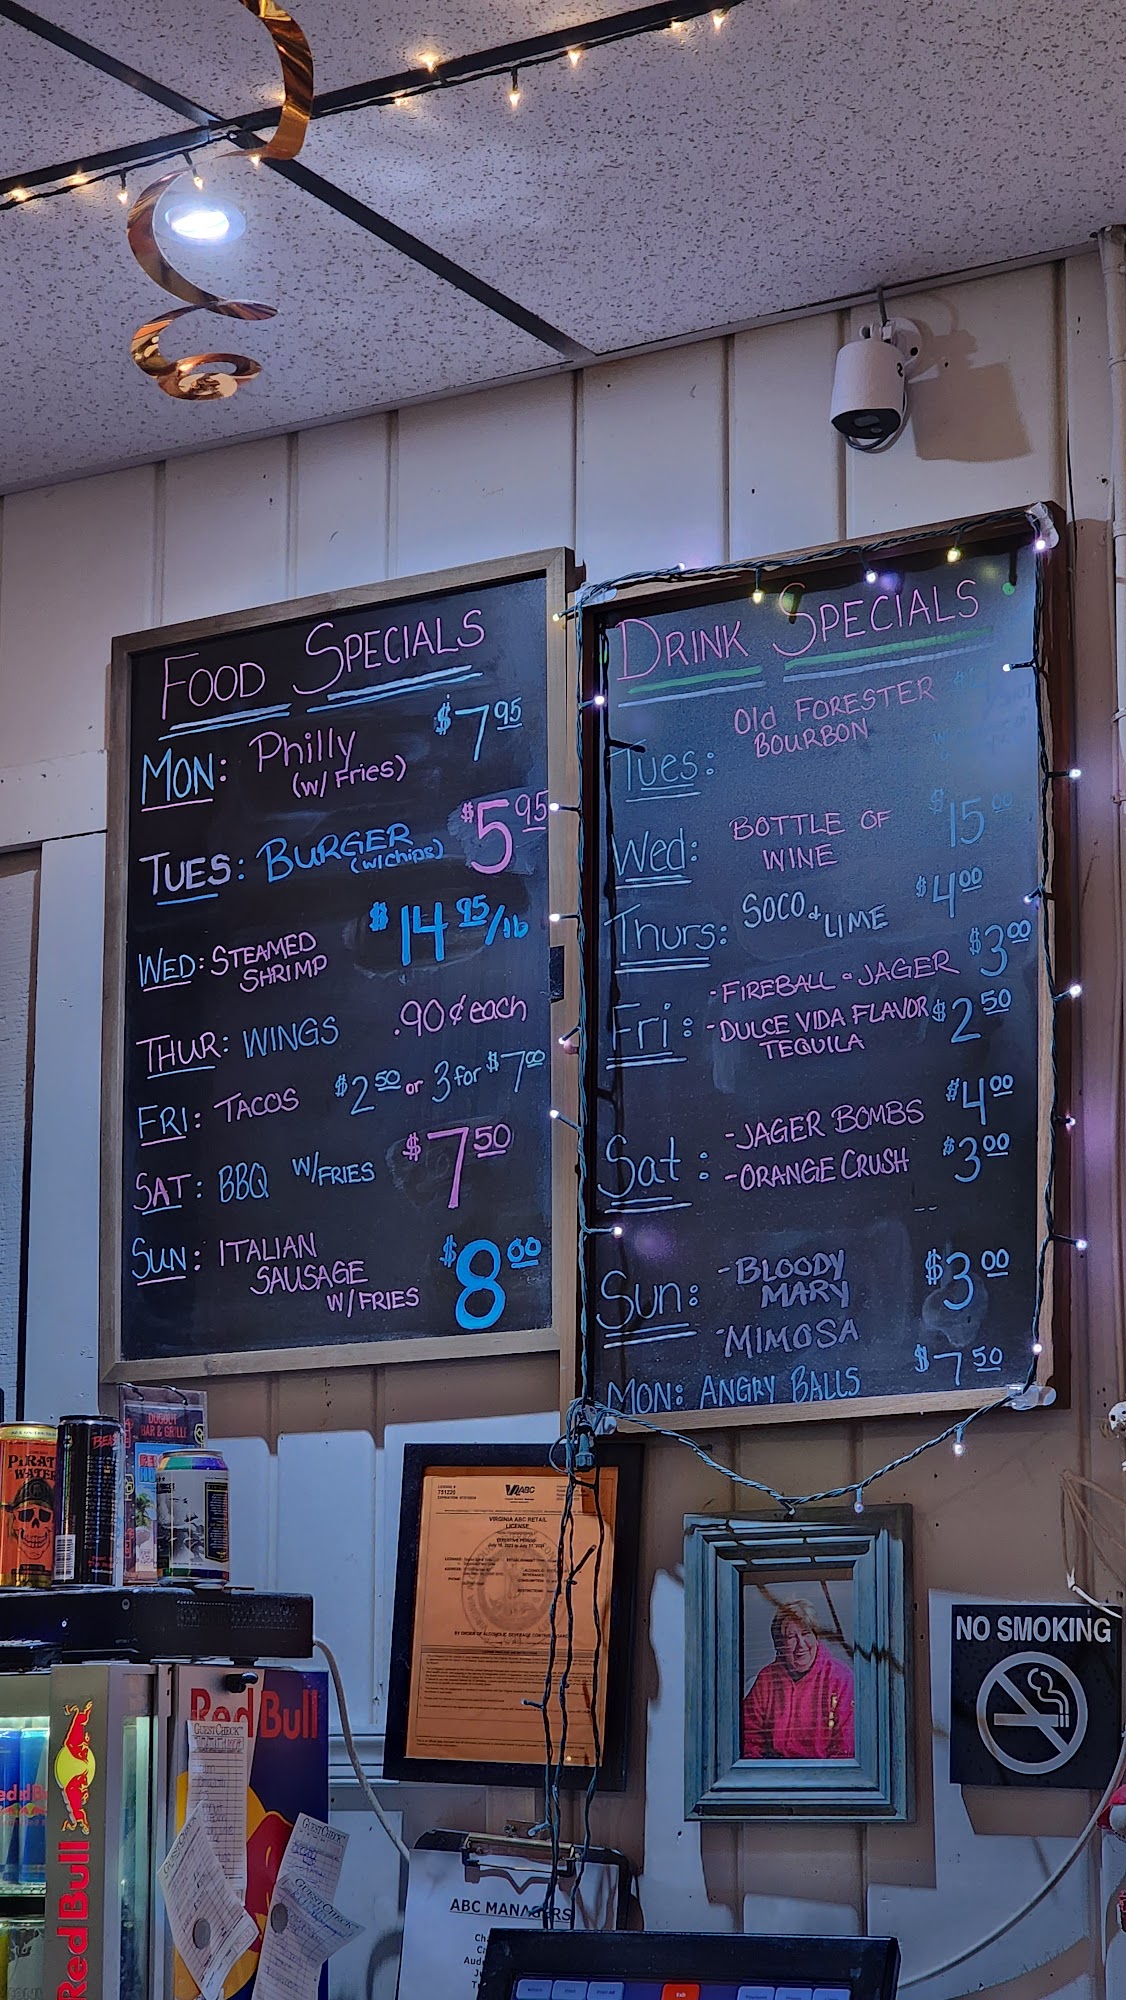 FOOD SPECIALS
MON: Philly $7.95
(w/ Fries)
TUES: BURGER $5.95
(w/chips)
WED: STEAMED SHRIMP $14.95/lb
THUR: WINGS .90¢ each
FRI: TACOS $2.50 or 3 for $7.00
SAT: BBQ W/FRIES $7.50
SUN: ITALIAN SAUSAGE W/FRIES $8.00
DRINK SPECIALS
Tues: Old FORESTER
BOURBON
Wed: BOTTLE OF WINE $15.00
Thurs: SOCO & LIME $4.00
Fri: -FIREBALL - JAGER $3.00
-DULCE VIDA FLAVOR $2.50
TEQUILA
Sat: -JAGER BOMBS $4.00
-ORANGE CRUSH $3.00
Sun: -BLOODY MARY $3.00
-MIMOSA
MON: ANGRY BALLS $7.50
PIRATE WATER
BAR & GRILL
VIRGINIA ABC RETAIL
LICENSE
NO SMOKING
Red Bull
Red Bull
GUEST CHECK
GUEST CHECK
ABC MANAGERS
Exit